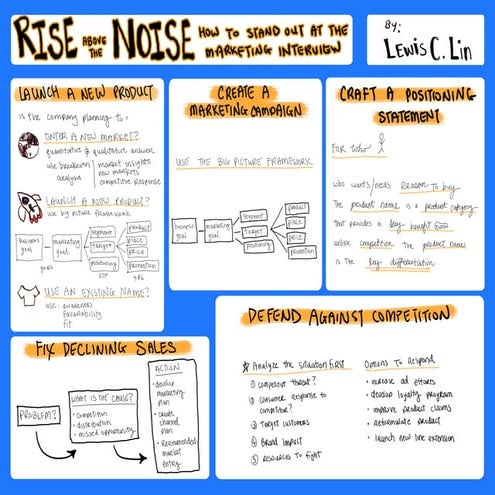 RISE ABOVE THE NOISE HOW TO STAND OUT AT THE
MARKETING INTERVIEW
By:
LEWIS C. LIN
LAUNCH A NEW PRODUCT
is the company planning to:
ENTER A NEW MARKET?
quantitative & qualitative answer
use breakeven
analysis
market insights
new markets
competitive response
LAUNCH A NEW PRODUCT?
use big picture framework
business
goal
marketing
goal
segment
target
positioning
product
place
price
promotion
goals
STP
4 Ps
USE AN EXISTING NAME?
use: awareness
favorability
fit
CREATE A
MARKETING CAMPAIGN
USE THE BIG PICTURE FRAMEWORK
business
goal
marketing
goal
segment
target
positioning
product
place
price
promotion
CRAFT A POSITIONING
STATEMENT
FOR who
who wants/needs reason to buy
The product name is a product category
that provides a key benefit
unlike competition the product name
is the key differentiation
FIX DECLINING SALES
PROBLEM?
WHAT IS THE CAUSE?
• competition
• distribution
• missed opportunity
ACTION
• develop
marketing
plan
• create
channel
plan
• Recommended
market
entry
DEFEND AGAINST COMPETITION
Analyze the situation first
① competitor threat?
② consumer response to
competitor?
③ target customers
④ Brand impact
⑤ resources to fight
Options to respond
• increase ad efforts
• develop loyalty program
• improve product claims
• reformulate product
• launch new line extension